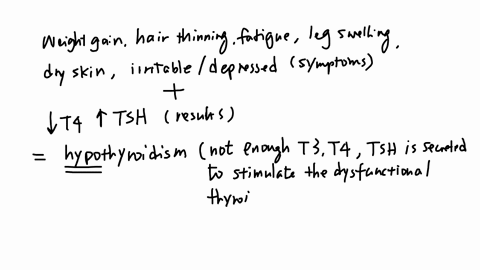 Weight gain, hair thinning, fatigue, leg swelling,
dry skin, irritable/depressed (symptoms)
+
↓T4 ↑TSH (results)
= hypothyroidism (not enough T3, T4, TSH is secreted
to stimulate the dysfunctional
thyroi